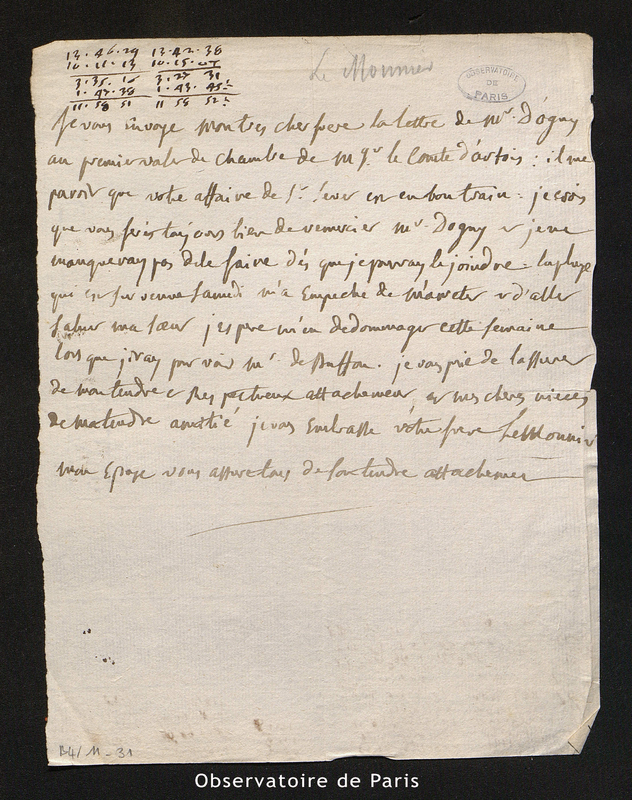 13. 46. 29 13. 42. 38
10. 11. 13 10. 15. 07
3. 35. 16 3. 27 31
1. 47. 38 1. 43. 45
11. 58 51 11 58 52
Le Monnier
OBSERVATOIRE
DE
PARIS
Je vous Envoye mon tres cher frere la lettre de Mr. D'ogny
au premier valet de chambre de Mgr. le Comte d'artois : il me
paroit que votre affaire de St. Sever est en bon train. je crois
que vous serés toujours lieu de remercier Mr. Dogny et je ne
manqueray pas de le faire dès que je pourray le joindre. la pluye
qui est survenue samedi m'a Empeché de m'arreter et d'aller
saluer ma soeur j'espere m'en dedommager cette semaine
lors que j'iray pour voir Mr. de Buffon. je vous prie de l'assurer
de mon tendre et respectueux attachement et mes cheres nieces
de ma tendre amitié je vous Embrasse vôtre frere LeMonnier
mon Epouse vous assure tous de son tendre attachement
B4/11-31
Observatoire de Paris